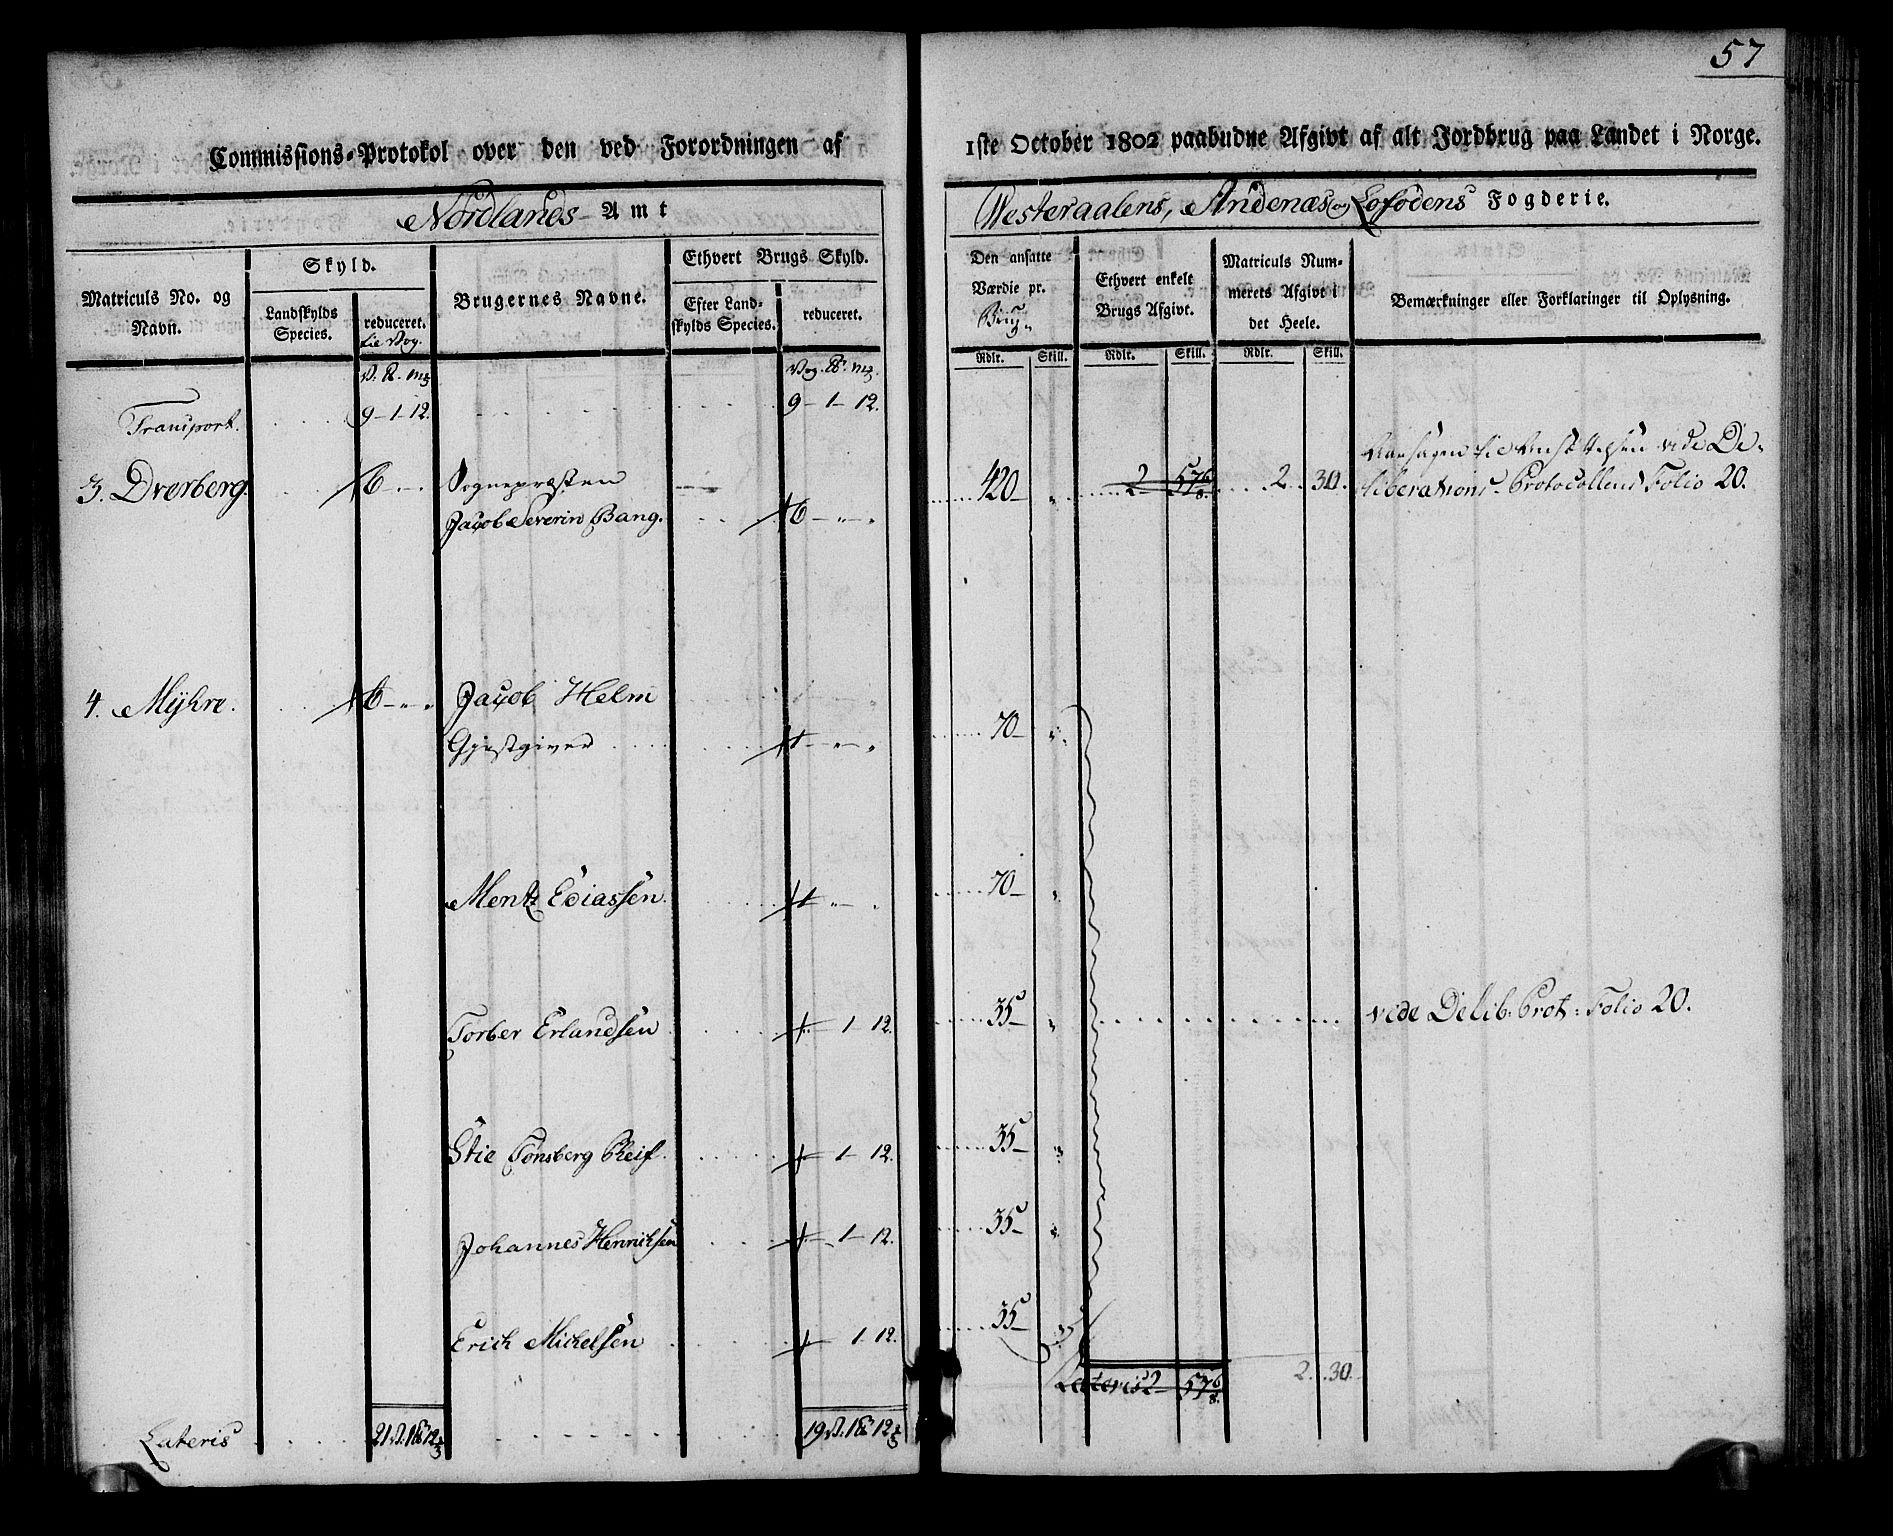 57
Commissions-Protokol over den ved Forordningen af 1ste October 1802 paabudne Afgivt af alt Jordbrug paa Landet i Norge.
Nordlands Amt
Westeraalens, Andenæs og Lofodens Fogderie.
Matriculs No. og Navn.
Skyld.
Landskylds Species.
reduceret.
Brugernes Navne.
Ethvert Brugs Skyld.
Efter Landskylds Species.
reduceret.
Den ansatte Værdie pr.
Ethvert enkelt Brugs Afgivt.
Matriculs Nummerets Afgivt i det Heele.
Bemærkninger eller Forklaringer til Oplysning.
Rdlr. Skill. Rdlr. Skill. Rdlr. Skill.
Transport. 9 - 1 - 12. 9 - 1 - 12.
3. Dverberg. 6 Sognepræsten
Jacob Severin Bang. 6 - " - "
420 " 2 57 6/8 2 30. vide De-
liberations-Protocollens Folio 20.
4. Myhre. 6 - " " Jacob Helm
Gjestgiver 1 - " - " 70 - "
Mentz Ediassen. 1 " - " 70 - "
Torber Erlandsen 1 - 12. 35 - " vide Delib: Prot: Folio 20.
Stie Tønsberg 1 - 12. 35 - "
Johannes Henriksen 1 - 12. 35 - "
Erich Michelsen 1 12. 35 - "
Lateris 2 57 6/8. 2. 30
Lateris 21 V. 1 12 19 V. 1 12